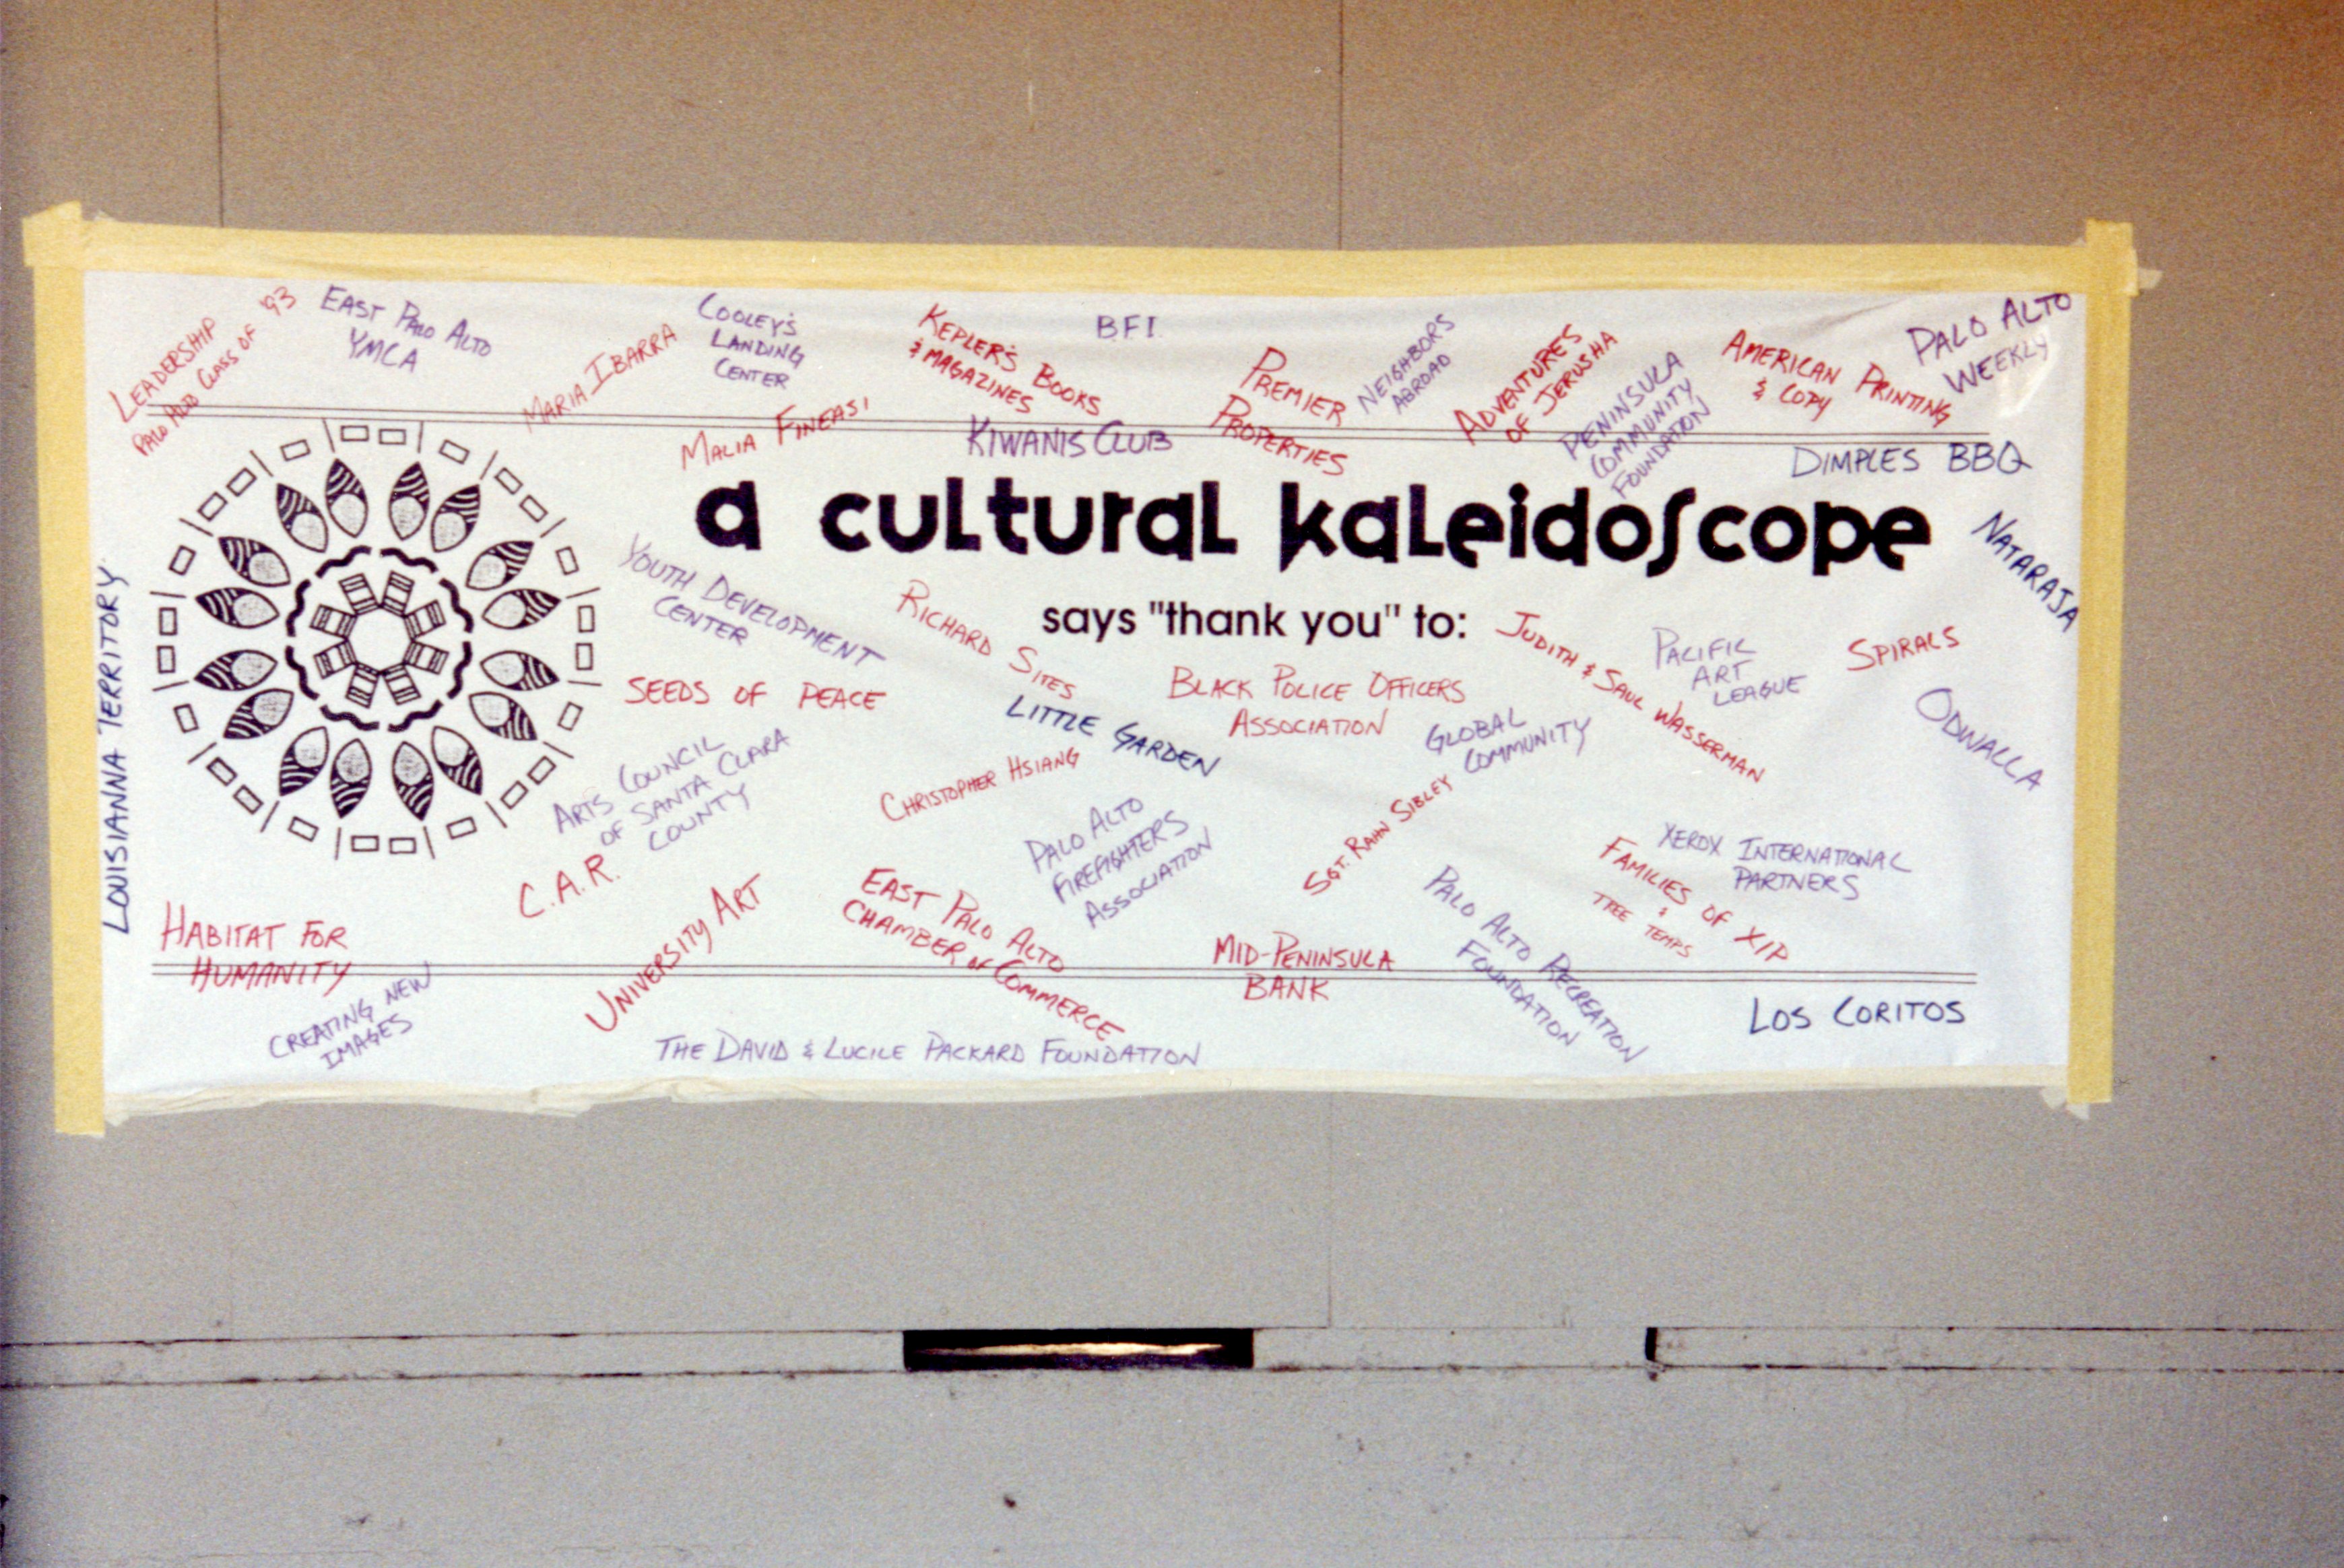 LEADERSHIP
PALO ALTO CLASS OF '93
EAST PALO ALTO
YMCA
MARIA IBARRA
COOLEY'S
LANDING
CENTER
MALIA FINEASI
KEPLER'S BOOKS
& MAGAZINES
BFI
KIWANIS CLUB
PREMIER
PROPERTIES
NEIGHBORS
ABROAD
ADVENTURES
OF JERUSHA
PENINSULA
COMMUNITY
FOUNDATION
AMERICAN PRINTING
& COPY
PALO ALTO
WEEKLY
DIMPLES BBQ
a cultural kaleidoscope
says "thank you" to:
NATARAJA
LOUISIANNA TERRITORY
YOUTH DEVELOPMENT
CENTER
RICHARD SITES
SEEDS OF PEACE
LITTLE GARDEN
BLACK POLICE OFFICERS
ASSOCIATION
JUDITH & SAUL WASSERMAN
PACIFIC
ART
LEAGUE
SPIRALS
ODWALLA
GLOBAL
COMMUNITY
ARTS COUNCIL
OF SANTA CLARA
COUNTY
CHRISTOPHER HSIANG
PALO ALTO
FIREFIGHTERS
ASSOCIATION
SGT. RAHN SIBLEY
XEROX INTERNATIONAL
PARTNERS
FAMILIES OF XIP
&
TEMPS
C.A.R.
UNIVERSITY ART
EAST PALO ALTO
CHAMBER OF COMMERCE
MID-PENINSULA
BANK
PALO ALTO RECREATION
FOUNDATION
HABITAT FOR
HUMANITY
CREATING NEW
IMAGES
THE DAVID & LUCILE PACKARD FOUNDATION
LOS CORITOS